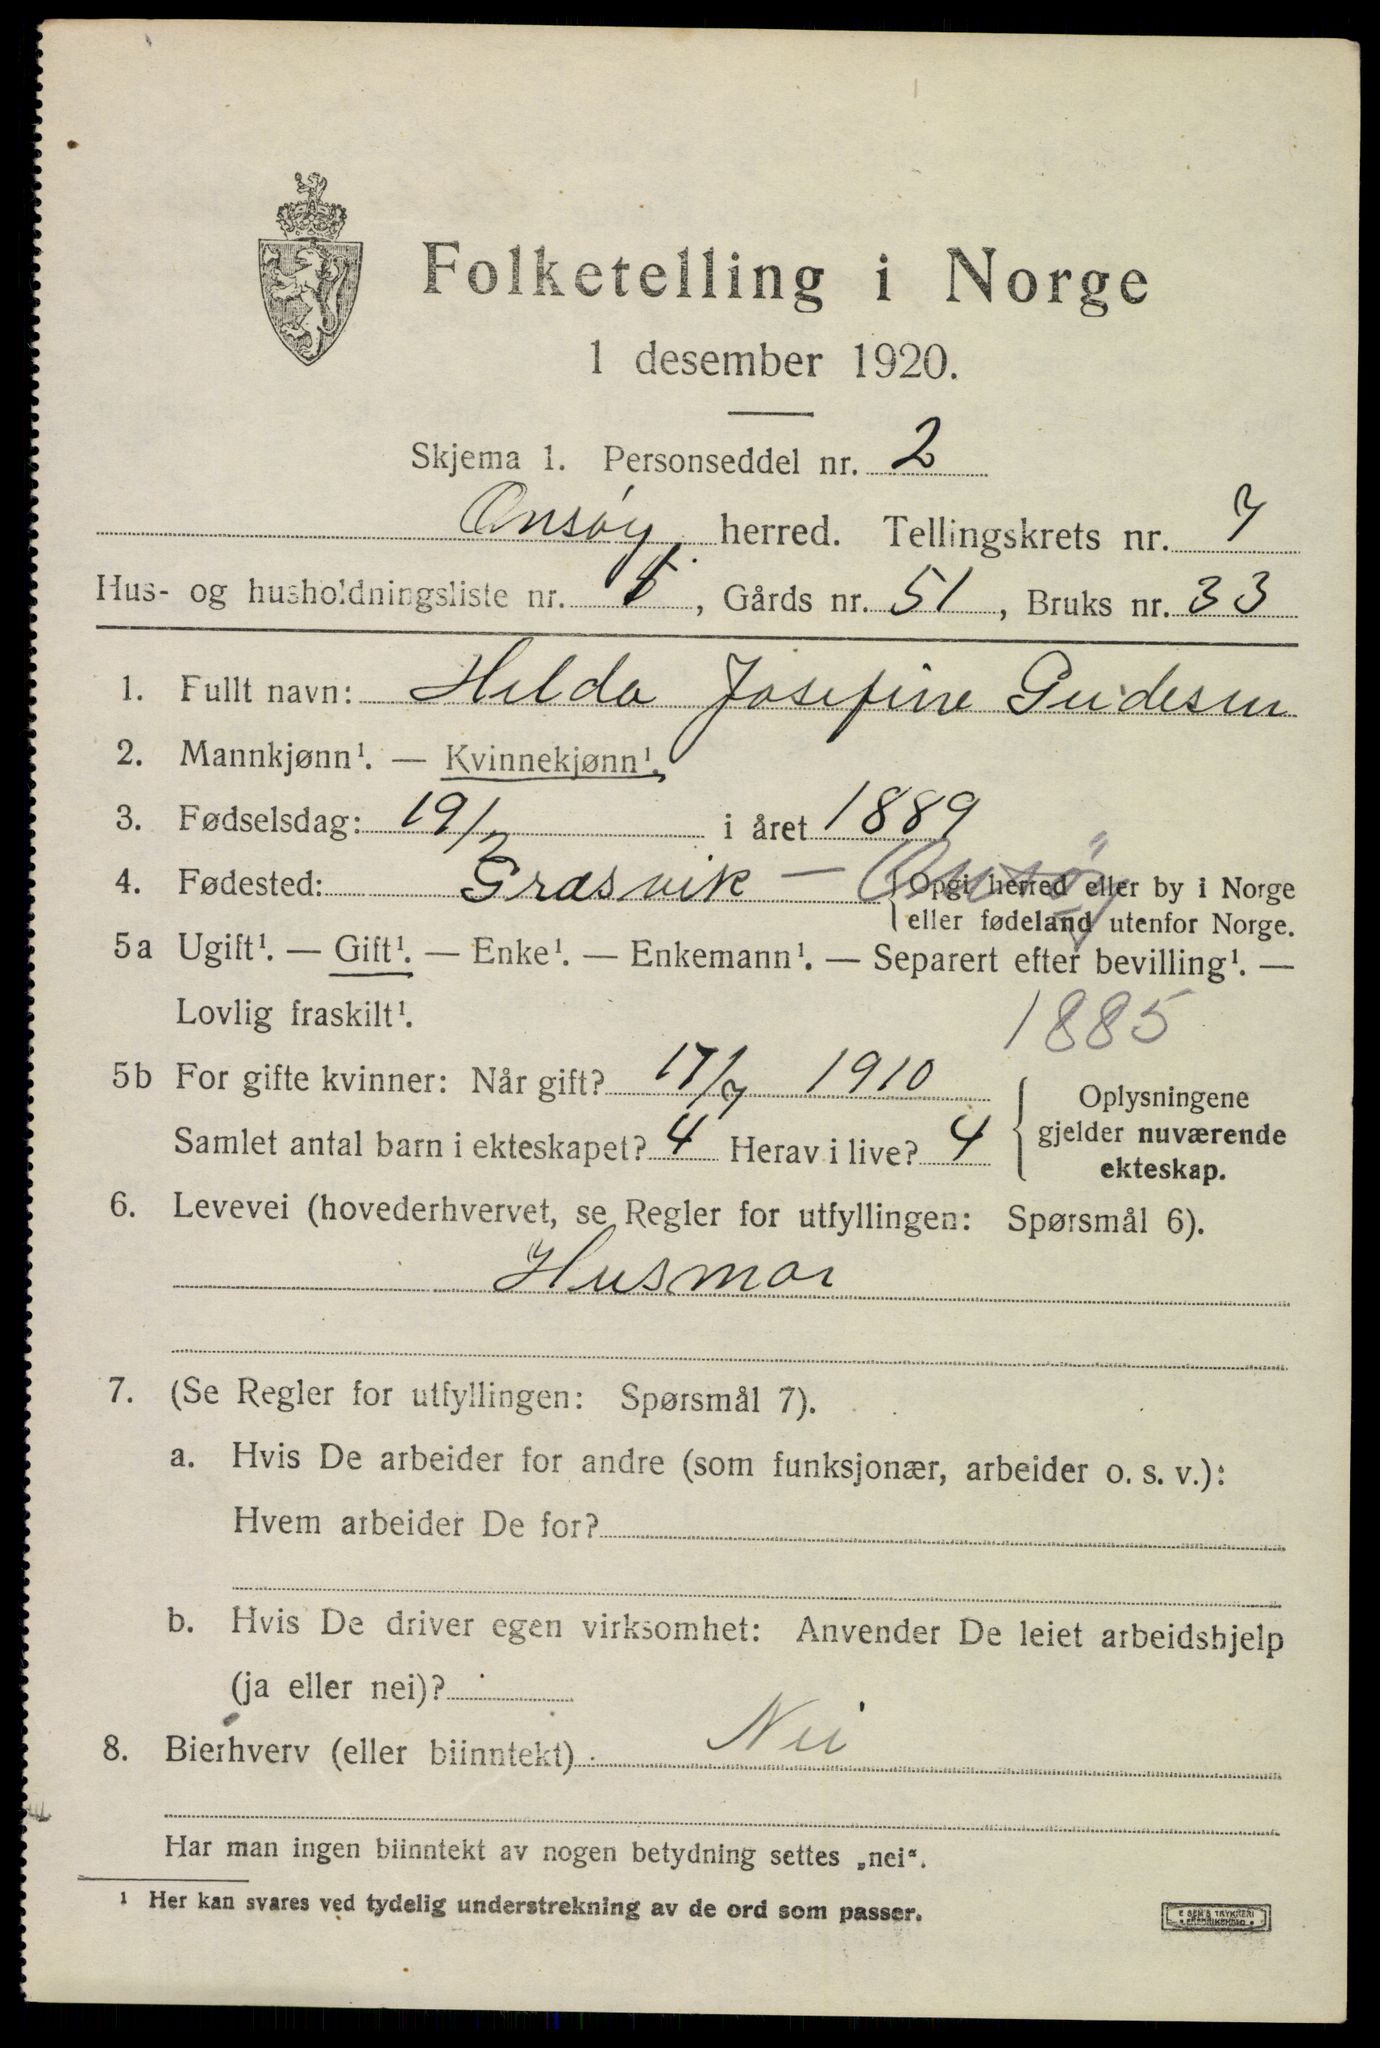 Folketelling i Norge
1 desember 1920.
Skjema 1. Personseddel nr. 2
Onsøy herred. Tellingskrets nr. 7
Hus- og husholdningsliste nr. , Gårds nr. 51 , Bruks nr. 33
1. Fullt navn: Hilda Josefine Gudesen
2. Mannkjønn¹. — Kvinnekjønn¹.
3. Fødselsdag: 19/2 i året 1889
4. Fødested: Græsvik — Onsøy { Opgi herred eller by i Norge
eller fødeland utenfor Norge.
5a Ugift¹. — Gift¹. — Enke¹. — Enkemann¹. — Separert efter bevilling¹. —
Lovlig fraskilt¹. 1885
5b For gifte kvinner: Når gift? 17/7 1910
Samlet antal barn i ekteskapet? 4 Herav i live? 4 { Oplysningene
gjelder nuværende
ekteskap.
6. Levevei (hovederhvervet, se Regler for utfyllingen: Spørsmål 6).
Husmor
7. (Se Regler for utfyllingen: Spørsmål 7).
a. Hvis De arbeider for andre (som funksjonær, arbeider o. s. v.):
Hvem arbeider De for?
b. Hvis De driver egen virksomhet: Anvender De leiet arbeidshjelp
(ja eller nei)?
8. Bierhverv (eller biinntekt) Nei
Har man ingen biinntekt av nogen betydning settes „nei“.
¹ Her kan svares ved tydelig understrekning av de ord som passer.